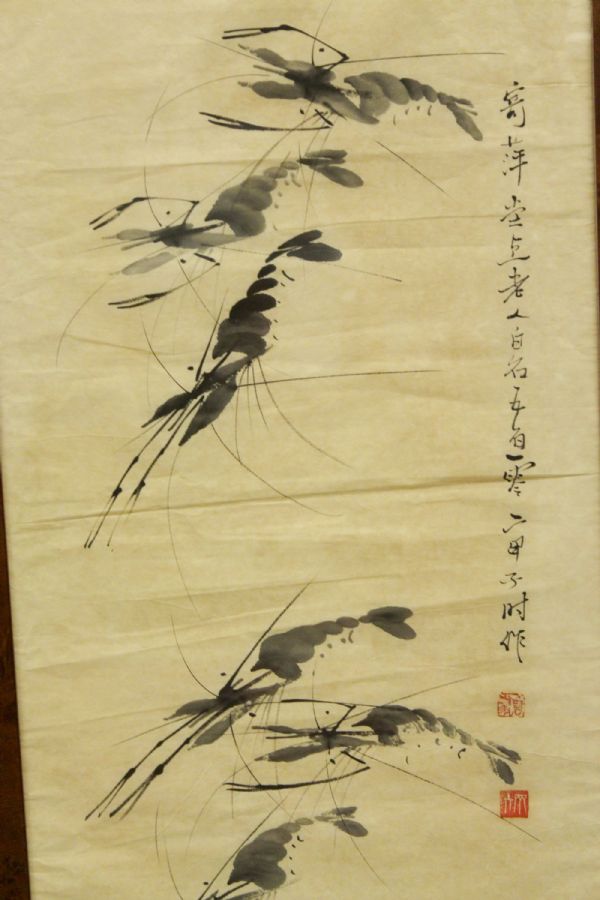 寄萍堂上老人白石五百零二甲子时作